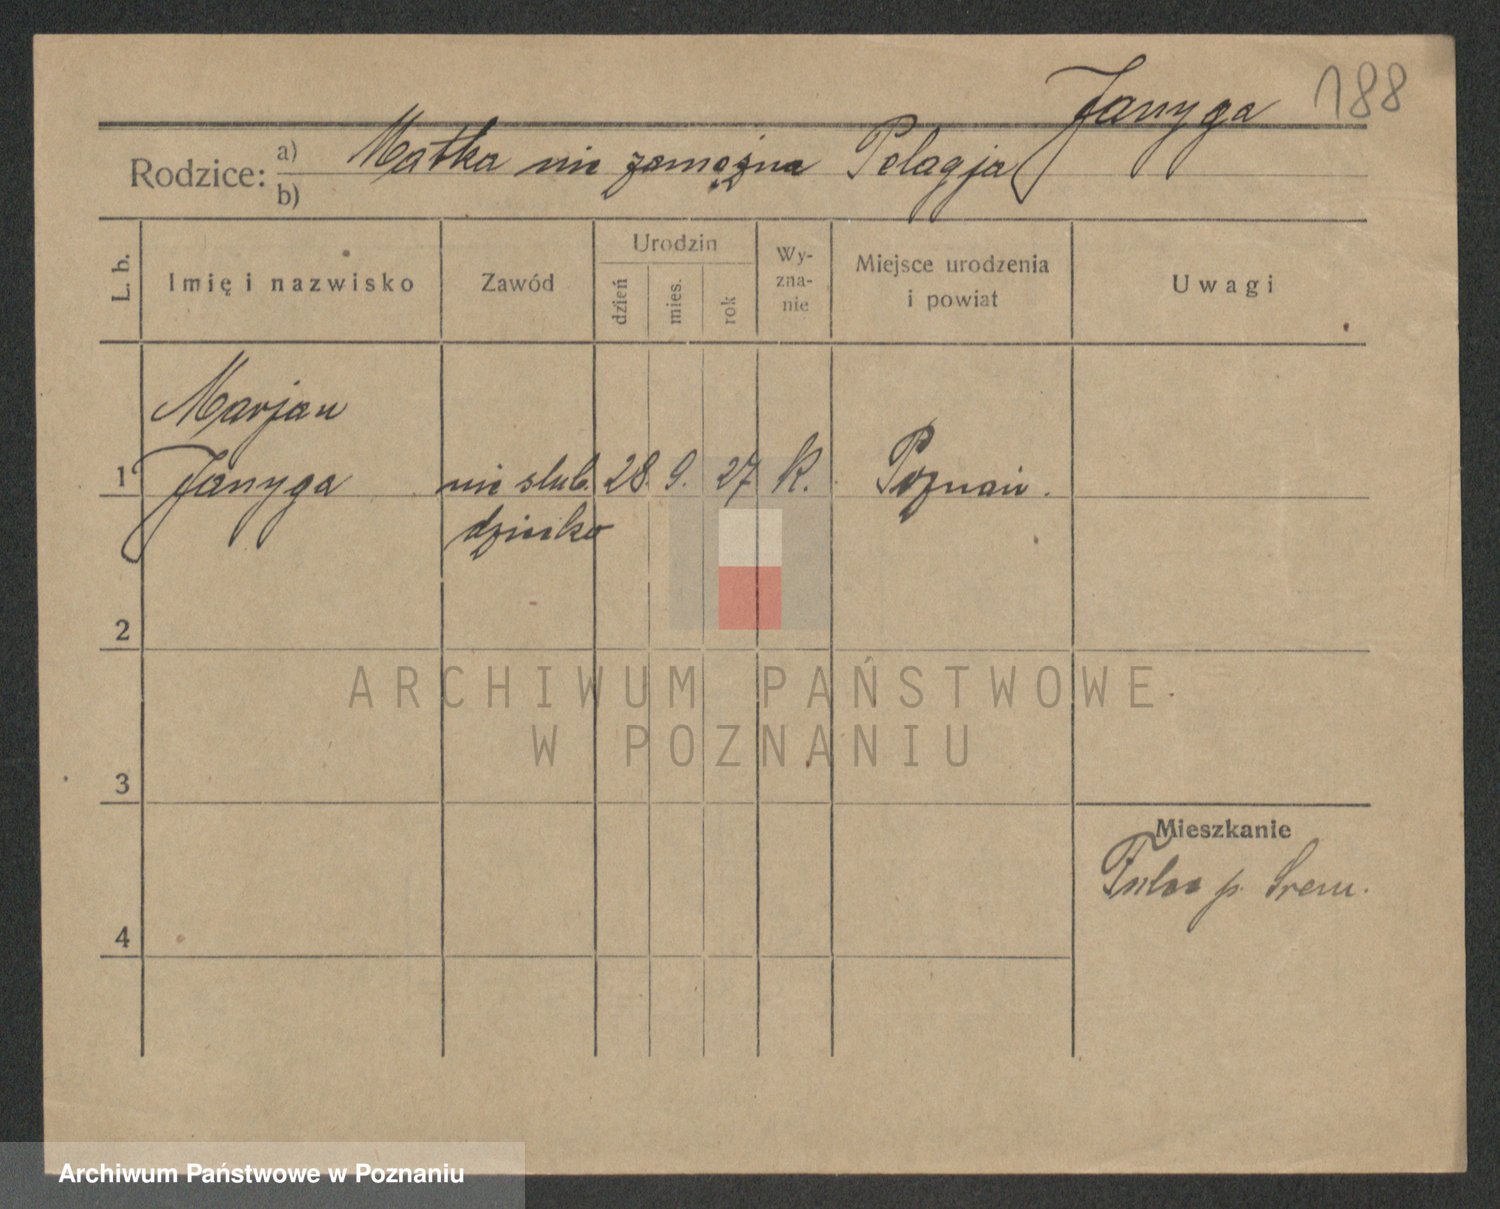 Janyga 188
Rodzice: a) Matka nie zamężna Pelagja
b)
L. b. Imię i nazwisko Zawód Urodzin dzień mies. rok Wy-zna-nie Miejsce urodzenia i powiat Uwagi
Marjan
1 Janyga nie ślub. 28. 9. 27 K. Poznań.
dziecko
2
ARCHIWUM PAŃSTWOWE
W POZNANIU
3
Mieszkanie
p. Śrem.
4
Archiwum Państwowe w Poznaniu